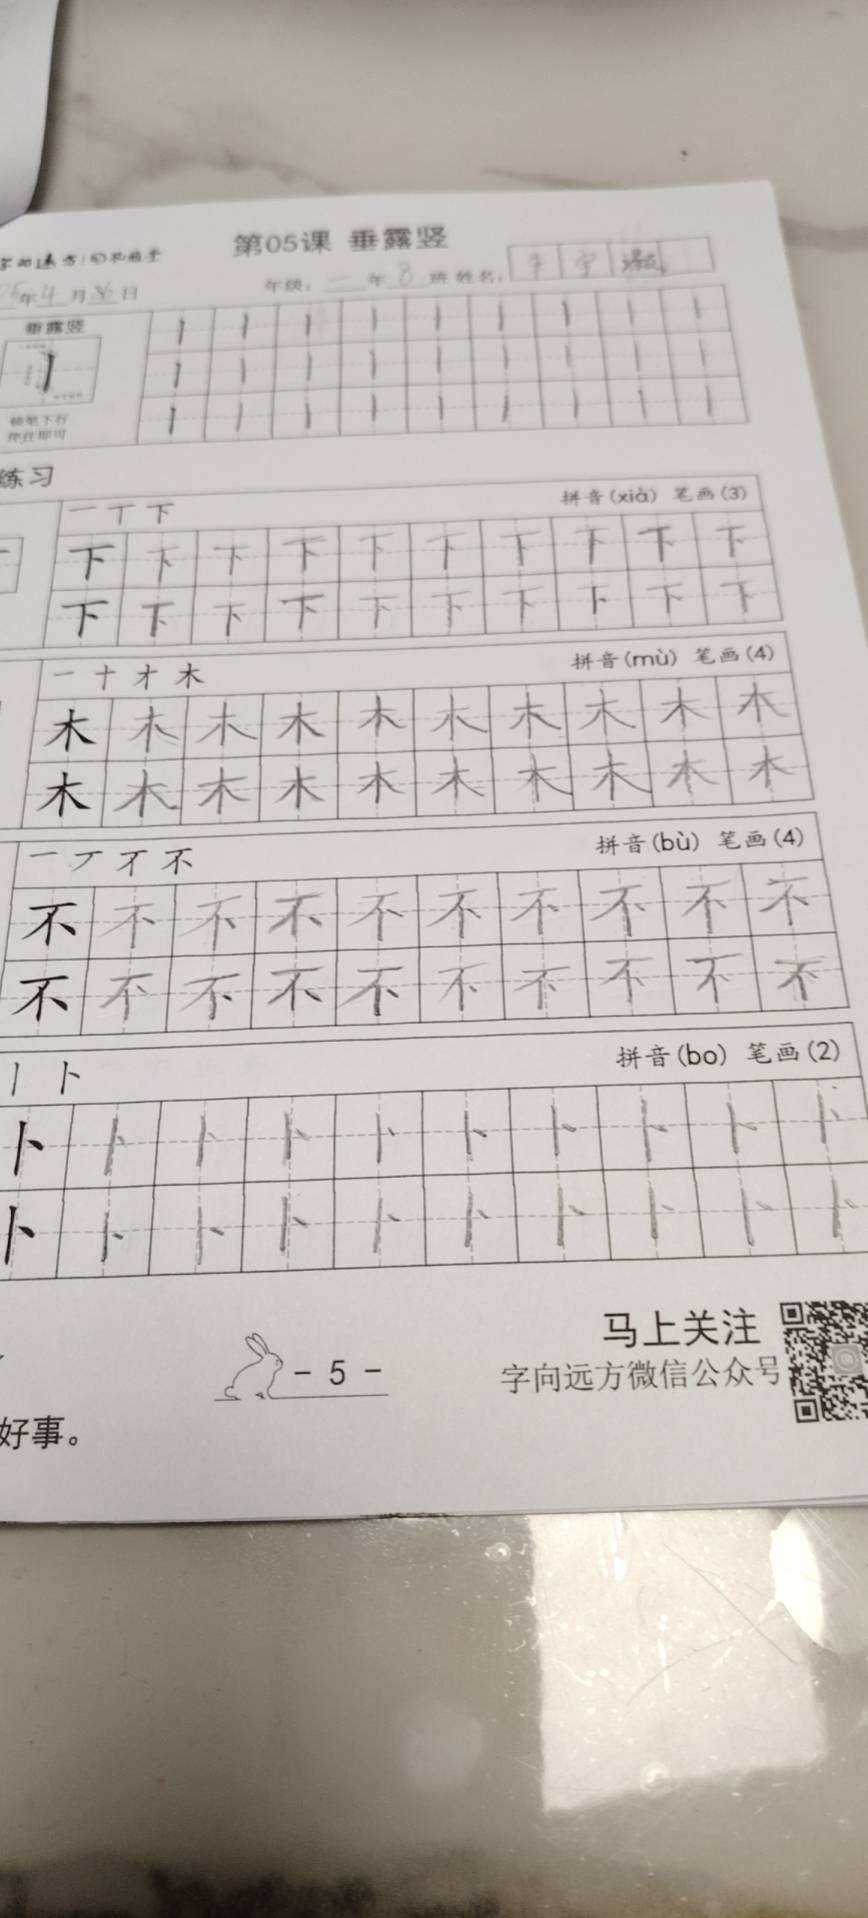 第05课 垂露竖
年 4 月 日 年级： 二 年 8 班 姓名：
垂露竖
练习
一 丅 下 拼音(xià) 笔画(3)
下 下 下 下 下 下 下 下 下 下
下 下 下 下 下 下 下 下 下 下
一 十 才 木 拼音(mù) 笔画(4)
木 木 木 木 木 木 木 木 木 木
木 木 木 木 木 木 木 木 木 木
一 丆 不 不 拼音(bù) 笔画(4)
不 不 不 不 不 不 不 不 不 不
不 不 不 不 不 不 不 不 不 不
丨 卜 拼音(bo) 笔画(2)
卜 卜 卜 卜 卜 卜 卜 卜 卜 卜
卜 卜 卜 卜 卜 卜 卜 卜 卜 卜
马上关注
- 5 - 字向远方微信公众号
好事。